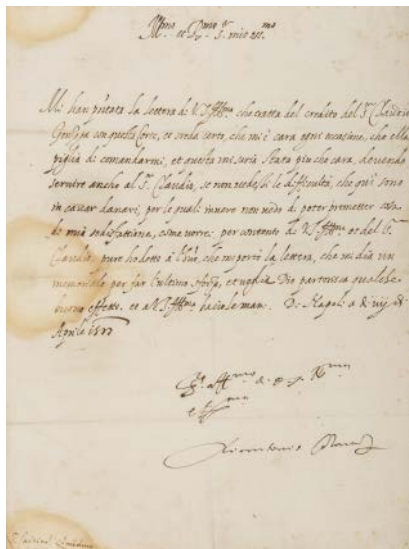 Ill.mo et R.mo S.r mio oss.mo
Mi han p'ntata la lettera di V.S. Ill.ma che tratta del credito del S.r Claudio
con questa Corte, et creda certo, che mi è cara ogni occasione, che ella
piglia di comandarmi, et questa mi saria stata piu che cara, devendo
servire anche al S.r Claudio, se non vedessi le difficultà, che qui sono
in cavar danari, per le quali invero non vedo di poter prometter cosa
di mia sodisfattione, come vorrei per contento di V.S. Ill.ma et del S.r
Claudio, pure ho detto à l'huo, che mi portò la lettera, che mi dia un
memoriale per far l'ultimo sforzo, et voglia Dio partorisca qualche
buono effetto. et a V.S. Ill.ma bacio le mani. Di Napoli a di iiij di
Aprile